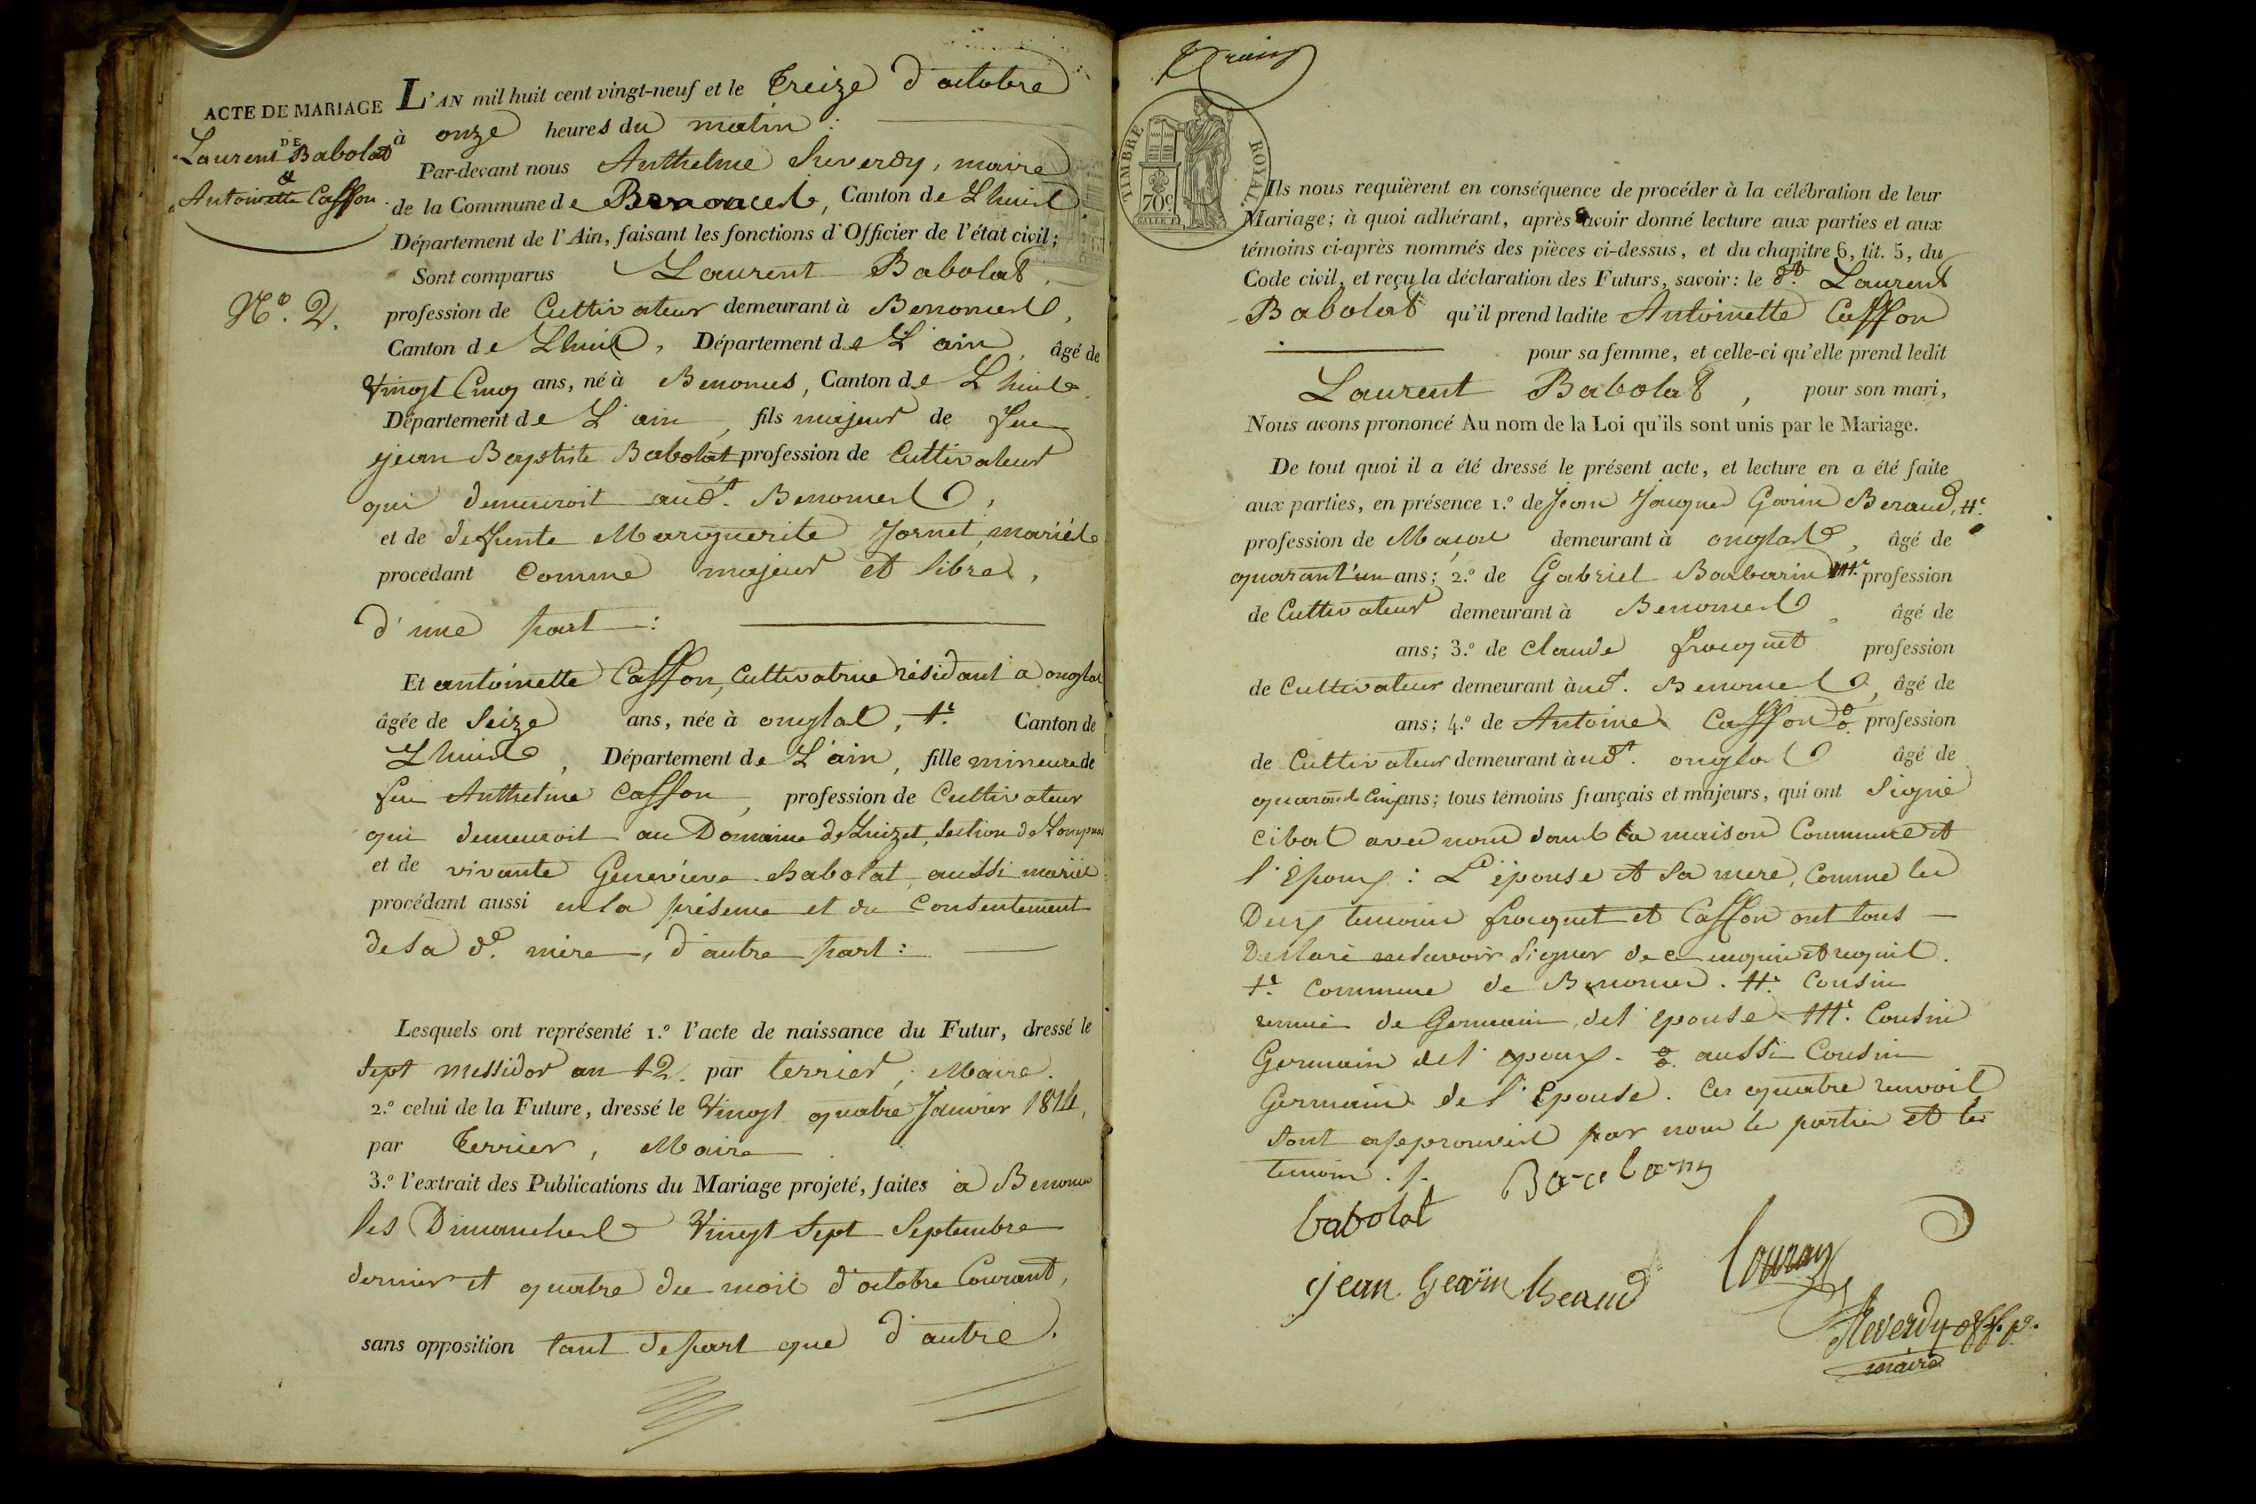 ACTE DE MARIAGE
DE
Laurent Babolat
&
Antoinette Casson.
N.º 2.
L'AN mil huit cent vingt-neuf et le Treize d'octobre
à onze heures du matin :
Par-devant nous Anthelme Reverdy, maire
de la Commune de Benonces, Canton de Lhuis
Département de l'Ain, faisant les fonctions d'Officier de l'état civil;
Sont comparus Laurent Babolat,
profession de Cultivateur demeurant à Benonces,
Canton de Lhuis, Département de L'ain, âgé de
Vingt Cinq ans, né à Benonces, Canton de Lhuis
Département de L'ain, fils majeur de feu
jean Baptiste Babolat profession de Cultivateur
qui demeuroit aud.t Benonces,
et de defunte Marguerite Jornet, mariés
procédant comme majeur et libre,
d'une part :
Et antoinette Casson, Cultivatrice résidant à onglas
âgée de Seize ans, née à onglas, Canton de
Lhuis, Département de L'ain, fille mineure de
feu Anthelme Casson, profession de Cultivateur
qui demeuroit au Domaine de Luizet, Section de
et de vivante Genevieve Babolat, aussi mariés
procédant aussi en la présence et du Consentement
de sa d.e mère, d'autre part :
Lesquels ont représenté 1.º l'acte de naissance du Futur, dressé le
sept messidor an 12. par terrier, Maire.
2.º celui de la Future, dressé le Vingt quatre Janvier 1814,
par Terrier, Maire
3.º l'extrait des Publications du Mariage projeté, faites à Benonces
les Dimanches Vingt Sept Septembre
dernier et quatre du mois d'octobre Courant,
sans opposition tant de part que d'autre.
TIMBRE ROYAL
70c
Ils nous requièrent en conséquence de procéder à la célébration de leur
Mariage; à quoi adhérant, après avoir donné lecture aux parties et aux
témoins ci-après nommés des pièces ci-dessus, et du chapitre 6, tit. 5, du
Code civil, et reçu la déclaration des Futurs, savoir : le d.t Laurent
Babolat qu'il prend ladite Antoinette Casson
pour sa femme, et celle-ci qu'elle prend ledit
Laurent Babolat, pour son mari,
Nous avons prononcé Au nom de la Loi qu'ils sont unis par le Mariage.
De tout quoi il a été dressé le présent acte, et lecture en a été faite
aux parties, en présence 1.º de Jean Jacques Garin Beraud, ++.
profession de Maçon demeurant à onglas, âgé de
quarant'un ans; 2.º de Gabriel Barbarin +++. profession
de Cultivateur demeurant à Benonces, âgé de
ans; 3.º de Claude froquet profession
de Cultivateur demeurant àud.t Benonces, âgé de
ans; 4.º de Antoine Casson profession
de Cultivateur demeurant àud.t onglas âgé de
quarante Cinq ans; tous témoins français et majeurs, qui ont Signé
cibas avec nous dans la maison Commune et
l'Epoux : L'épouse et sa mere, Comme les
Deux temoins froquet et Casson ont tous
Declaré ne savoir Signer de ce enquis et requis.
+. Commune de Benonces. ++. Cousin
remué de Germain de l'epouse +++. Cousin
Germain de l'epoux. aussi Cousin
Germain de l'Epouse. Ces quatre renvois
sont approuvés par nous les parties et les
temoins.
babolat
jean Garin Beraud
Reverdy off. p.
maire